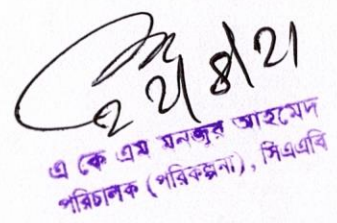 এ কে এম মনজুর আহমেদ
পরিচালক (পরিকল্পনা), সিএএবি